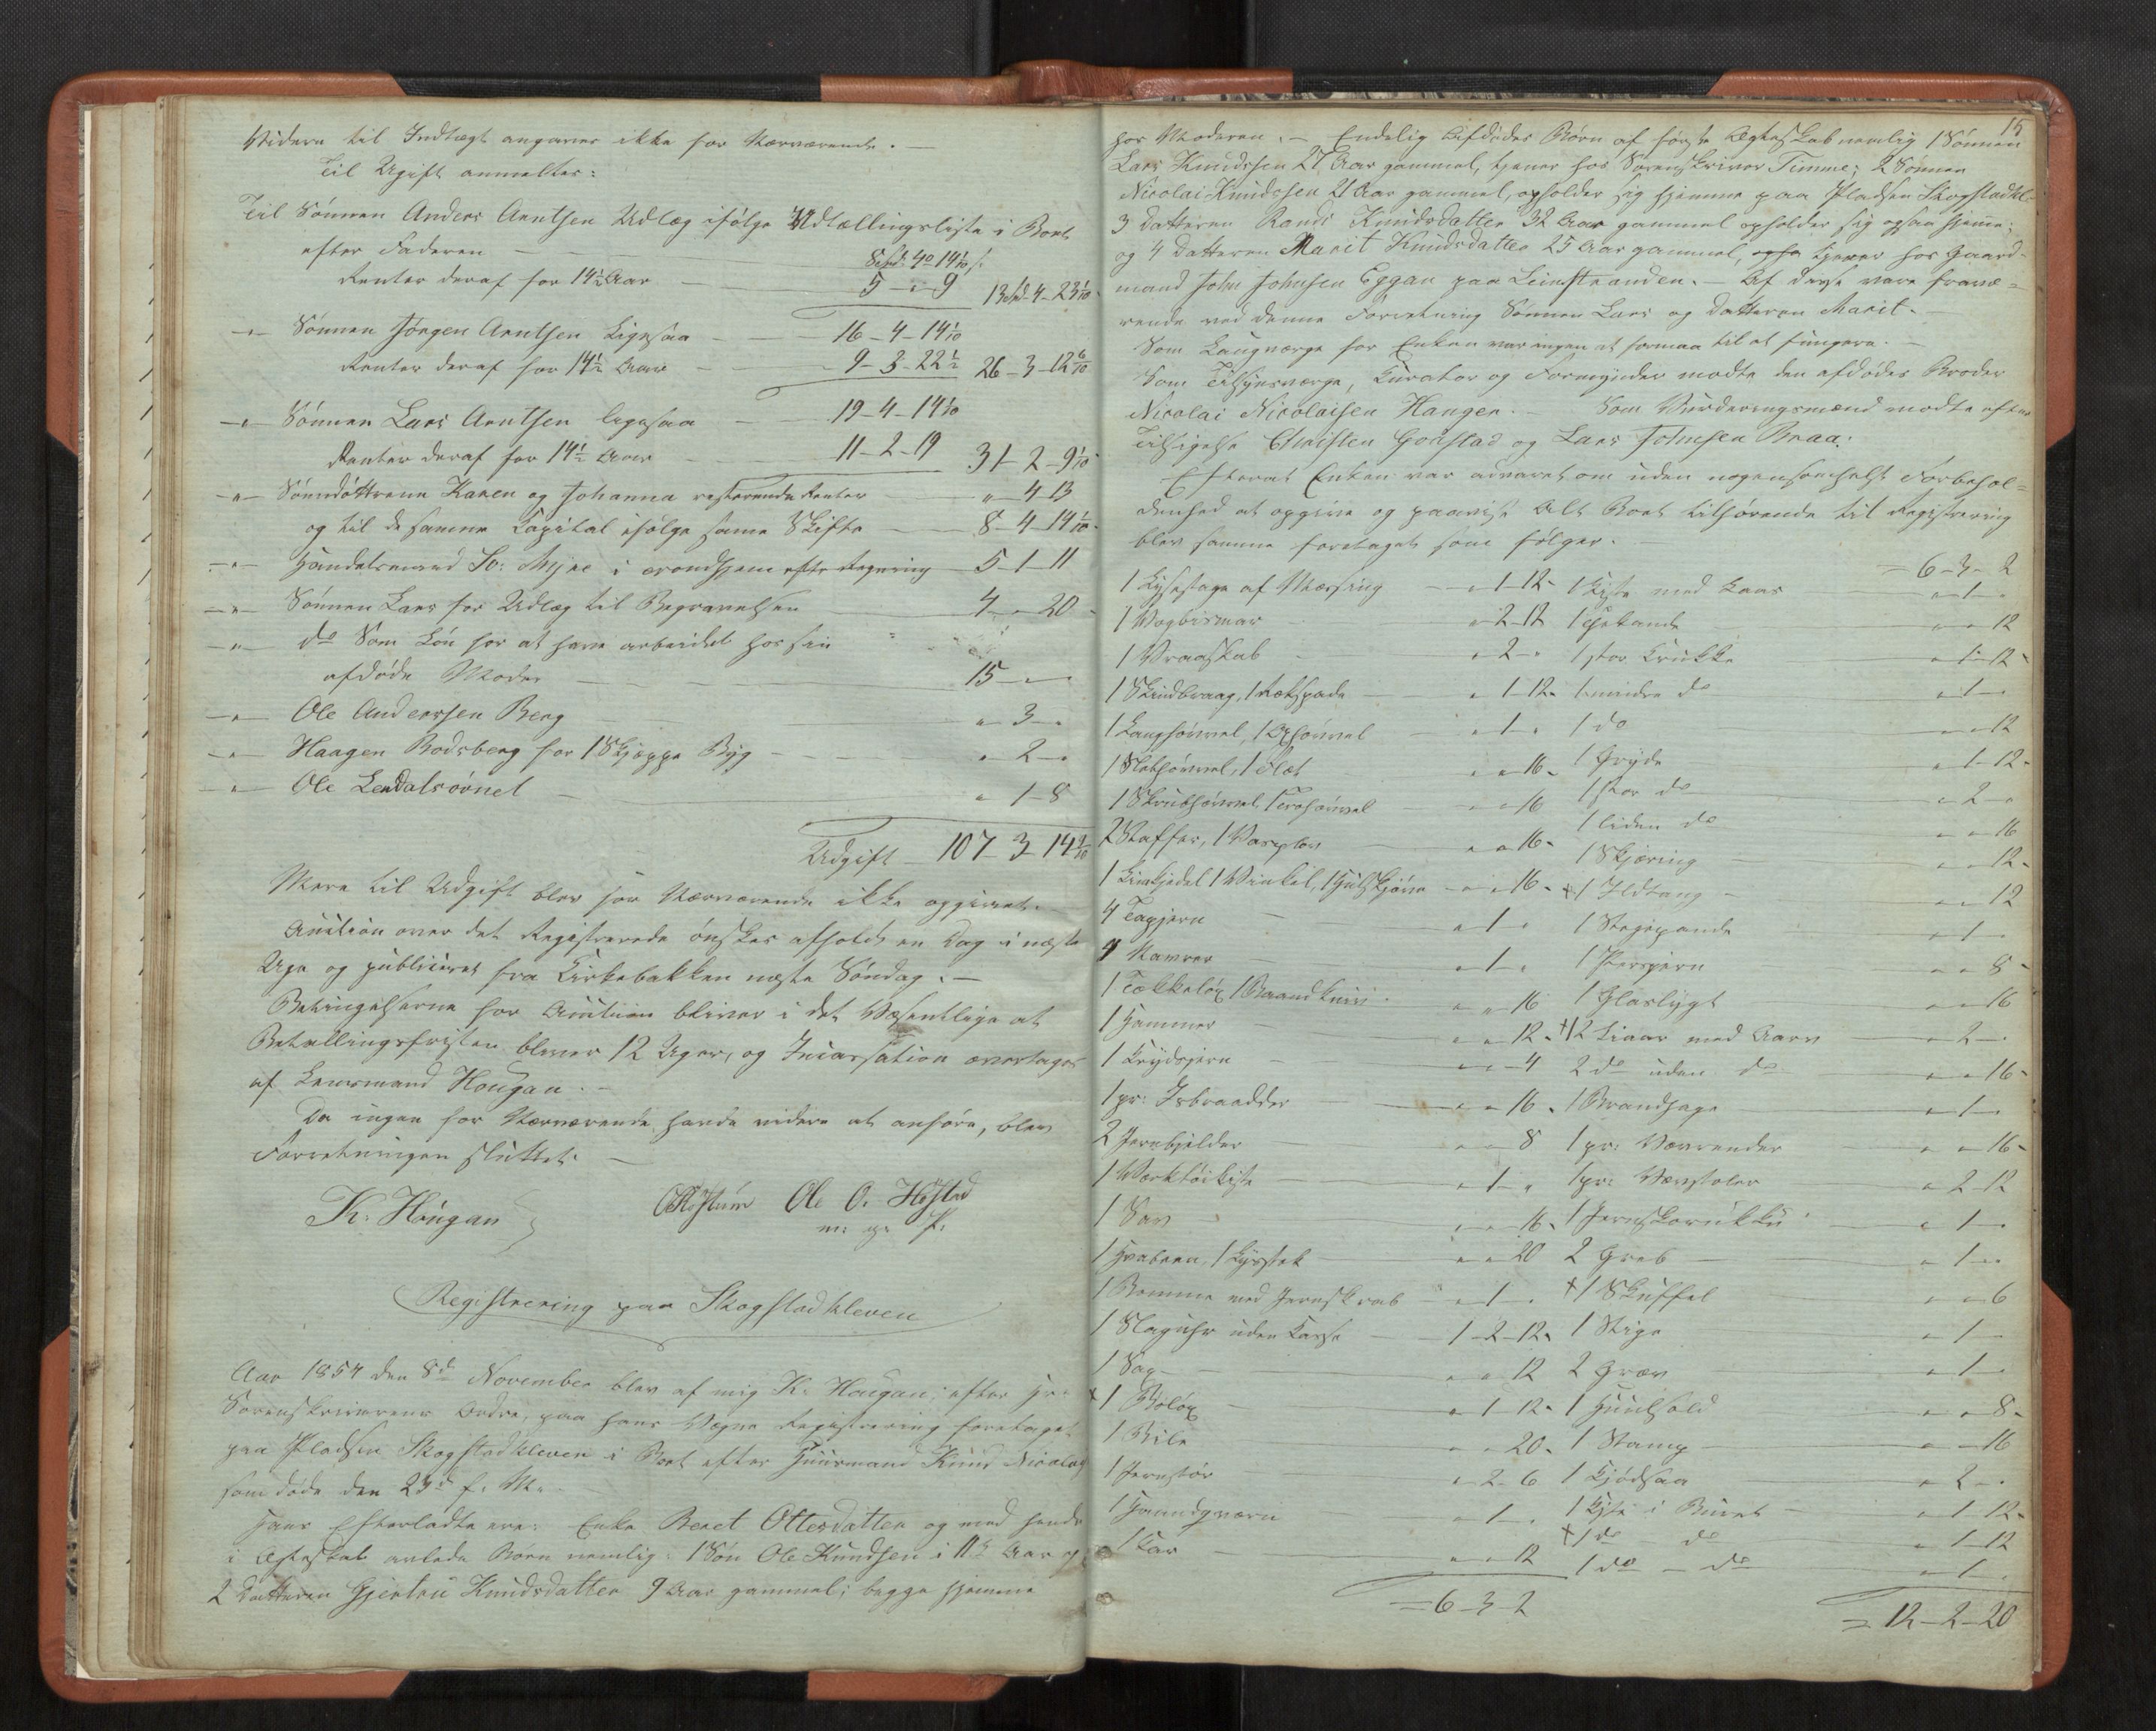 Videre til Indtægt angaves ikke for Nærværende. —
Til Udgift anmeltes:
Til Sønnen Anders Arntsen Udlæg ifølge Udlællingsliste i Boet
efter Faderen — 8 Spd: 4 o 14 1/10 s.
Renter deraf for 14½ Aar — 5 - " - 9 13 Spd - 4 - 23 1/10
- " - Sønnen Jørgen Arntsen Ligesaa — 16 - 4 - 14 1/10
Renter deraf for 14½ Aar — 9 - 3 - 22½ 26 - 3 - 12 6/10
- " - Sønnen Lars Arntsen ligesaa — 19 - 4 - 14 1/10
Renter deraf for 14½ Aar — 11 - 2 - 19 31 - 2 - 9 1/10
- " - Sønnedøttrene Karen og Johanna resterende Renter — " - 4 13
og til de samme Kapital ifølge samme Skifte — 8 - 4 - 14 1/10
- " - Handelsmand So: i Trondhjem efter Regning — 5 - 1 - 11
- " - Sønnen Lars for Udlæg til Begravelsen — 4 - " - 20
- " - do Som Løn for at have arbeidet hos sin
afdøde Moder — 15 - " -
- " - Ole Anderssen Berg — " - 3 - "
- " - Haagen Bodsberg for 1 Skjeppe Byg — " - 2 - "
- " - Ole Lendalsørnet — " - 1 - 8
Udgift — 107 - 3 - 14 9/10
Mere til Udgift blev for Nærværende ikke opgivet.
Auction over det Registrerede ønskes afholdt en Dag i næste
Uge og publiceret fra Kirkebakken næste Søndag. —
Betingelserne for Auction bliver i det Væsentlige at
Betallingsfristen bliver 12 Uger, og Incassation overtages
af Lensmand Hougan. —
Da ingen for Nærværende havde videre at anføre, blev
Forretningen sluttet. —
K. Hougan Ole O. Høstad
m: p: P:
Registrering paa Skogstadkleven
Aar 1854 den 8de November blev af mig K. Hougan, efter Hr.
Sorenskriverens Ordre, paa hans Vegne Registrering foretaget
paa Pladsen Skogstadkleven i Boet efter Huusmand Knud Nicolais
som døde den 23de f. M.
Hans Efterladte ere: Enke Beret Ottesdatter og med hende
i Ægteskab avlede Børn nemlig: 1 Søn Ole Knudsen i 11te Aar og
2 Datteren Gjertru Knudsdatter 9 Aar gammel; begge hjemme
15
hos Moderen. — Endelig Afdødes Børn af første Ægteskab nemlig 1 Sønnen
Lars Knudssen 27 Aar gammel, tjener hos Sorenskriver Timme; 2 Sønnen
Nicolai Knudssen 21 Aar gammel, opholder sig hjemme paa Pladsen Skogstadkl.
3 Datteren Randi Knudsdatter 32 Aar gammel opholder sig ogsaa hjemme;
og 4 Datteren Marit Knudsdatter 25 Aar gammel, tjener hos Gaard-
mand John Johnsen Eggan paa Leinstranden. — Af disse vare fravæ=
rende ved denne Forretning Sønnen Lars og Datteren Marit. —
Som Laugværge for Enken var ingen at formaa til at fungere. —
Som Tilsynsværge, Kurator og Formynder mødte den afdødes Broder
Nicolai Nicolaisen Hangen. — Som Vurderingsmænd mødte efter
Tilsigelse Christen Gorstad og Lars Johnsen Braa:
Efterat Enken var advaret om uden nogensomhelst Forbehol=
denhed at opgive og paavise Alt Boet tilhørende til Registrering
blev samme foretaget som følger. —
1 Lysestage af Messing — " - 1 - 12
1 Vogbismar — " - 2 - 12
1 Vraaskab — " - 2 - "
1 Skindbraag, 1 — " 1 - 12
1 Langhøvvel, 1 — " - 1 - "
1 Slethøvvel, 1 — " - " 16
1 Skrubhøvvel, — " - " 16
2 Staffer, 1 — " - " 16
1 1 Vinkel, — " - " 16
4 Tapjern — " - 1 - "
4 Navrer — " - 1 - "
1 1 Baandkniv — " - " 16
1 Hammer — " - " 12
1 Krydsjern — " - " - 4
1 pr: Isbraadder — " - " 16
2 Jernkjelder — " - " 8
1 Værktøikiste — " - 1 - "
1 Sav — " - " 16
1 1 — " - " 20
1 Bomme med Jernskrab — " - 1 - "
1 Slaguhr uden Kasse — 1 - 2 - 12
1 Sag — " - " 12
+ 1 Boløx — " - 1 - 12
1 Bile — " - " 20
1 Jernstør — " - 2 - 6
1 Haandqværn — " - 1 - "
1 Kar — " - " 12
= 6 - 3 - 2
= 6 - 3 - 2
1 Kiste med Laas — " - 1 - "
1 Thekande — " - " 12
1 stor Krukke — " - 1 - 12
1 mindre do — " - 1 - "
1 do — " - " 12
1 Gryde — " - 1 - 12
1 stor do — " - 2 - "
1 liden do — " - " 16
1 Skjæring — " - " 12
+ 1 Ildtang — " - " 12
1 Stegepande — " - 1 - "
1 Persjern — " - " 8
1 Glaslygt — " - " 16
+ 12 Liaar med — " - 2 - "
2 do uden do — " - " 16
1 Brandhage — " - 1 - "
1 pr: — " - " 16
1 pr: Vævstoler — " - 2 - 12
1 — " - 1 - "
2 Greb — " - 1 - "
+ 1 Skuffel — " - " 6
1 Stige — " - 1 -
2 Græv — " - 1 - "
1 — " - " 8
1 Stamp — " - " 16
1 Kjødsaa — " - 2 - "
1 Kiste i Buret — " - 1 - 12
+ 1 do do — " - 1 - 12
1 do - do — " - 1 - "
= 12 - 2 - 20